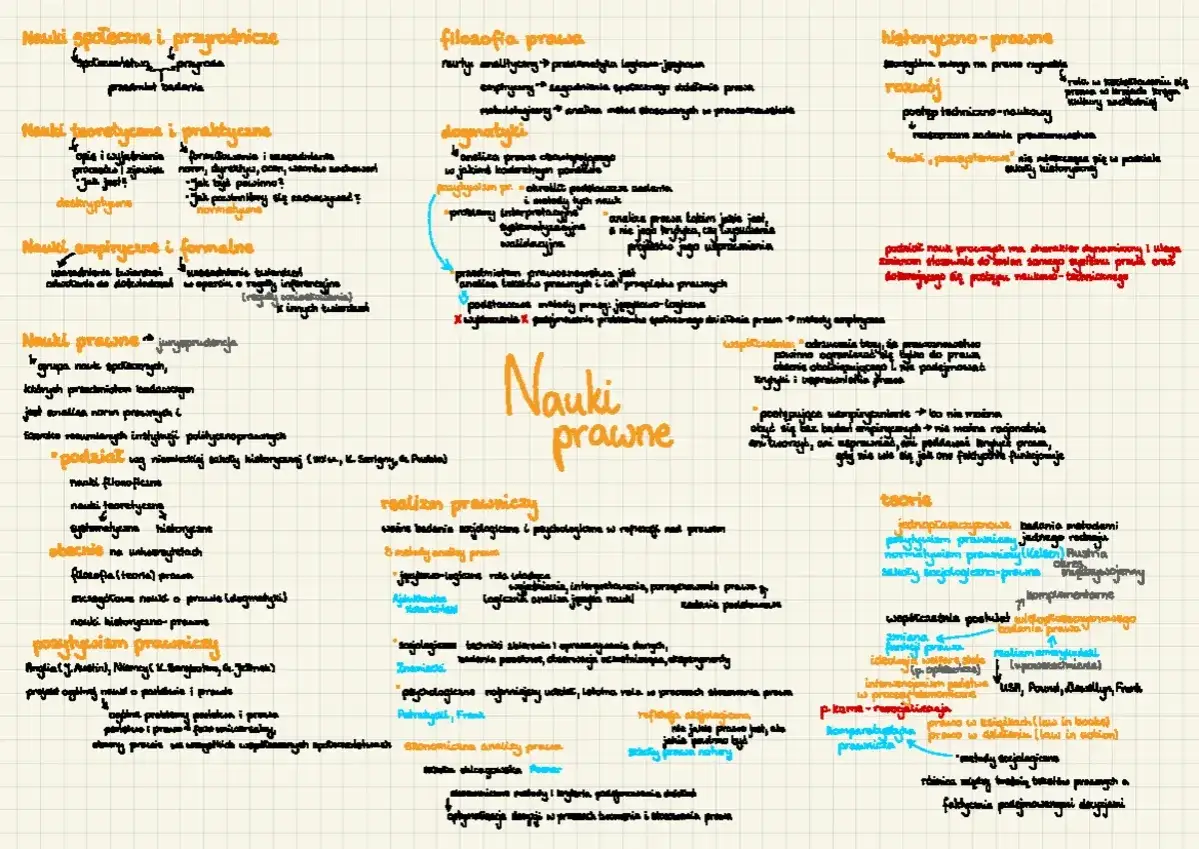 Nauki społeczne i przyrodnicze
społeczeństwo przyroda
przedmiot badania
Nauki teoretyczne i praktyczne
opis i wyjaśnianie
procesów i zjawisk
"Jak jest?"
deskryptywne
formułowanie i uzasadnianie
norm, dyrektyw, ocen, wzorów zachowań
"Jak być powinno?"
"Jak powinniśmy się zachowywać?"
normatywne
Nauki empiryczne i formalne
uzasadnienie twierdzeń
odwołanie do doświadczeń
uzasadnienie twierdzeń
w oparciu o reguły inferencyjne
(reguły wnioskowania)
z innych twierdzeń
Nauki prawne → jurysprudencja
grupa nauk społecznych,
których przedmiotem badawczym
jest analiza norm prawnych i
szeroko rozumianych instytucji politycznoprawnych
podział wg niemieckiej szkoły historycznej (XIX w., K. Savigny, G. Puchta)
nauki filozoficzne
nauki teoretyczne
systematyczne historyczne
obecnie na uniwersytetach
filozofia (teoria) prawa
szczegółowe nauki o prawie (dogmatyki)
nauki historyczno-prawne
pozytywizm prawniczy
Anglia (J. Austin), Niemcy (K. Bergbohm, G. Jellinek)
projekt ogólnej nauki o państwie i prawie
ogólne problemy państwa i prawa
państwo i prawo = fakt uniwersalny,
obecny prawie we wszystkich współczesnych społeczeństwach
filozofia prawa
nurty: analityczny → problematyka logiczno-językowa
empiryczny → zagadnienia społecznego działania prawa
metodologiczny → analiza metod stosowanych w prawoznawstwie
dogmatyki
analiza prawa obowiązującego
w jakimś konkretnym porządku
pozytywizm pr. • określił podstawowe zadania
i metody tych nauk
• problemy interpretacyjne
systematyzacyjne
walidacyjne
• analiza prawa takim jakie jest,
a nie jego krytyka, czy wysuwanie
projektów jego usprawnienia
przedmiotem prawoznawstwa jest
analiza tekstów prawnych i ich przepisów prawnych
podstawowe metody pracy: językowo-logiczne
X wykluczenie X podejmowanie problemów społecznego działania prawa → metody empiryczne
współcześnie: • odrzucenie tezy, że prawoznawstwo
powinno ograniczać się tylko do prawa
obecnie obowiązującego i nie podejmować
krytyki i usprawnienia prawa
• postępujące uempirycznienie → bo nie można
obyć się bez badań empirycznych → nie można racjonalnie
ani tworzyć, ani usprawniać, ani poddawać krytyce prawa,
gdy nie wie się jak ono faktycznie funkcjonuje
Nauki
prawne
historyczno-prawne
szczególna uwaga na prawo rzymskie
rola w kształtowaniu się
prawa w krajach kręgu
kultury zachodniej
rozwój
postęp techniczno-naukowy
rozszerzone zadania prawoznawstwa
nauki „pozasystemowe" nie mieszczące się w podziale
szkoły historycznej
podział nauk prawnych ma charakter dynamiczny i ulega
zmianom stosownie do zmian samego systemu prawa oraz
dokonującego się postępu naukowo-technicznego
realizm prawniczy
ważne badania socjologiczne i psychologiczne w refleksji nad prawem
3 metody analizy prawa
• językowo-logiczne rola wiodąca
wyjaśnianie, interpretowanie, porządkowanie prawa
(logiczna analiza języka nauki) zadanie podstawowe
Ajdukiewicz
Kotarbiński
• socjologiczne techniki zbierania i opracowywania danych,
badania terenowe, obserwacja uczestnicząca, eksperymenty
Znaniecki
• psychologiczne najmniejszy udział, istotna rola w procesach stosowania prawa
Petrażycki, Frank
ekonomiczna analiza prawa
szkoła chicagowska Posner
ekonomiczne metody i kryteria podejmowania działań
optymalizacja decyzji w procesach tworzenia i stosowania prawa
refleksja aksjologiczna
nie jakie prawo jest, ale
jakie powinno być
szkoły prawa natury
teorie
jednopłaszczyznowe badania metodami
jednego rodzaju
pozytywizm prawniczy
normatywizm prawniczy (Kelsen) Austria
okres
międzywojenny
szkoły socjologiczno-prawne
komplementarne
współcześnie postulat wielopłaszczyznowego
badania prawa
zmiana
funkcji prawa
ideologia welfare state
(p. opiekuńcze)
interwencjonizm państwa
w procesy ekonomiczne
p. karne - resocjalizacja
komparatystyka
prawnicza
realizm amerykański
(upowszechnienie)
USA, Pound, Llewellyn, Frank
prawo w książkach (law in books)
prawo w działaniu (law in action)
• metody socjologiczne
różnica między treścią tekstów prawnych a
faktycznie podejmowanymi decyzjami